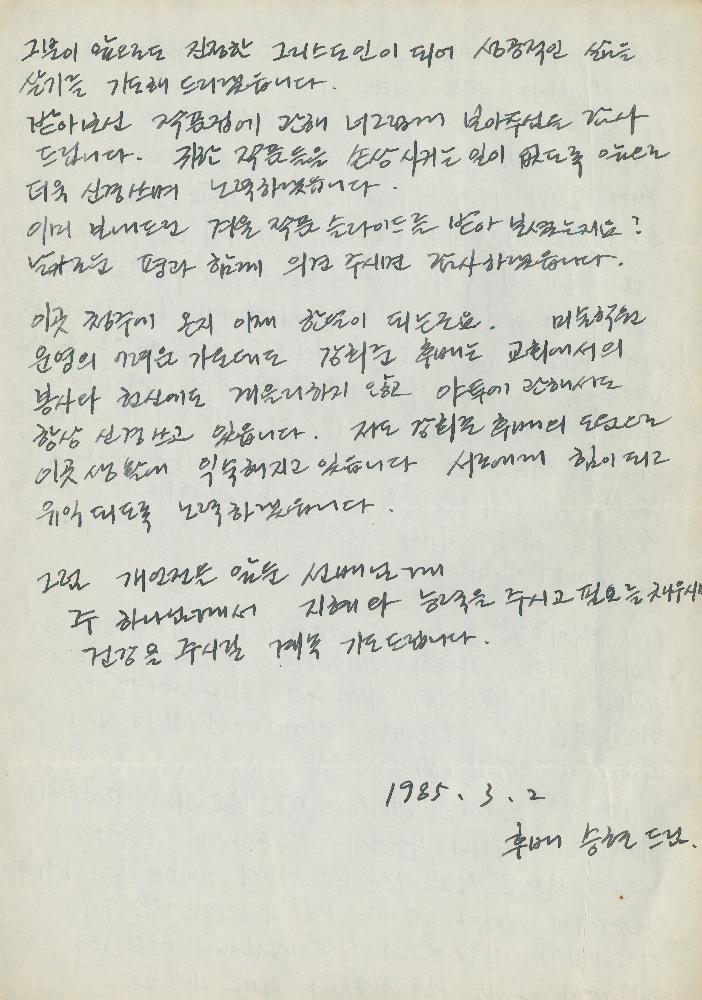 그분이 앞으로도 진정한 그리스도인이 되어 성공적인 삶을
살기를 기도해 드리겠습니다.
받아보신 작품점에 관해 너그럽게 보아주심을 감사
드립니다. 귀한 작품들을 손상시키는 일이 없도록 앞으로
더욱 신경쓰며 노력하겠습니다.
이미 보내드린 겨울 작품 슬라이드를 받아 보셨는지요?
평과 함께 의견 주시면 감사하겠습니다.
이곳 청주에 온지 이제 한달이 되는군요. 미술학원
운영의 어려운 가운데도 강희준 후배는 교회에서의
봉사와 헌신에도 게을리하지 않고 야투에 관해서도
항상 신경쓰고 있읍니다. 저도 강희준 후배의 도움으로
이곳 생활에 익숙해지고 있습니다 서로에게 힘이 되고
유익 되도록 노력하겠습니다.
그럼 개인전을 앞둔 선배님께
주 하나님께서 지혜와 능력을 주시고 필요를 채우시며
건강을 주시길 계속 기도드립니다.
1985. 3. 2
후배 승현 드림.